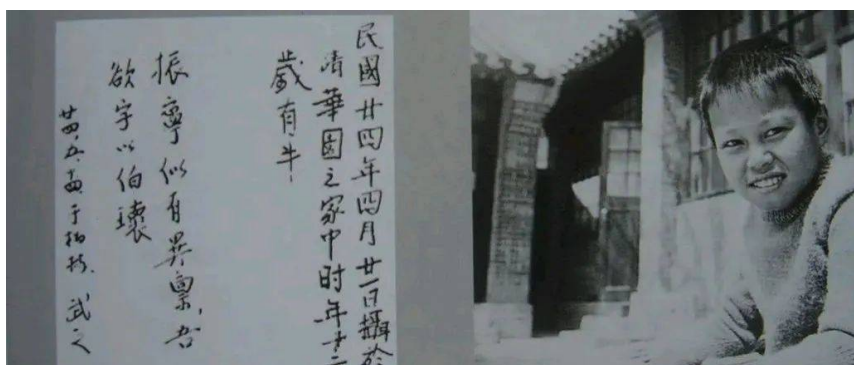 民國廿四年四月廿一日攝於
清華園之家中时年十二
歲有半
振寧似有異稟,吾
欲字以伯瓌
廿四、五、于柏林、武之